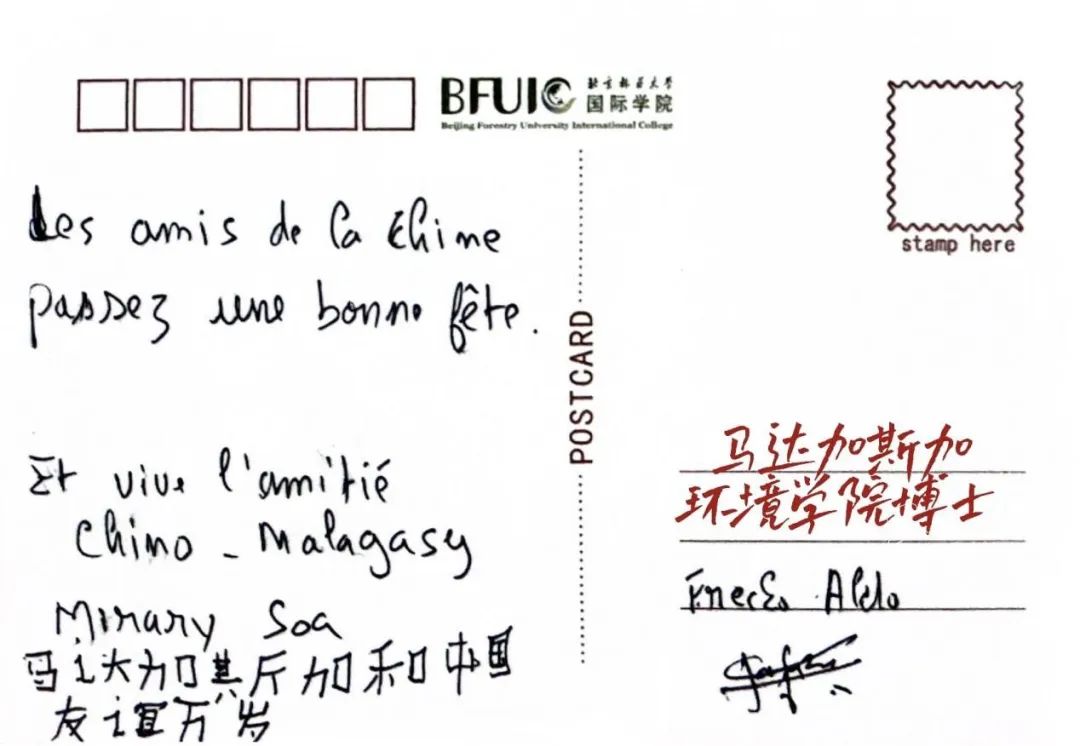 BFUIC 北京林业大学
国际学院
Beijing Forestry University International College
stamp here
Les amis de la Chine
passez une bonne fête.
Et vive l'amitié
Chino - Malagasy
Mirary Soa
马达加斯加和中国
友谊万岁
POSTCARD
马达加斯加
环境学院博士
Aldo